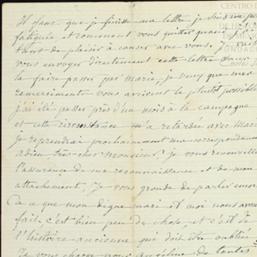 CENTRO D
Il faut que je finisse ma lettre je suis un peu
fatiguée et comment vous quitter quand j'ai
tant de plaisir à causer avec vous, je vais
vous envoyer directement cette lettre au lieu de
la faire passer par mari, je veux que mes
remerciements vous arrivent le plutôt possible
j'ai été passer près d'un mois à la campagne
et cette circonstance m'a retardée avec
je reprendrai prochainement ma correspondance
adieu très cher monsieur je vous renouvelle
l'assurance de ma reconnaissance et de mon
attachement, Je vous gronde de parler encore
de ce que mon digne mari et moi nous avons
fait, c'est bien peu de chose, et c'est de
l'histoire ancienne qui doit être oubliée
de toutes